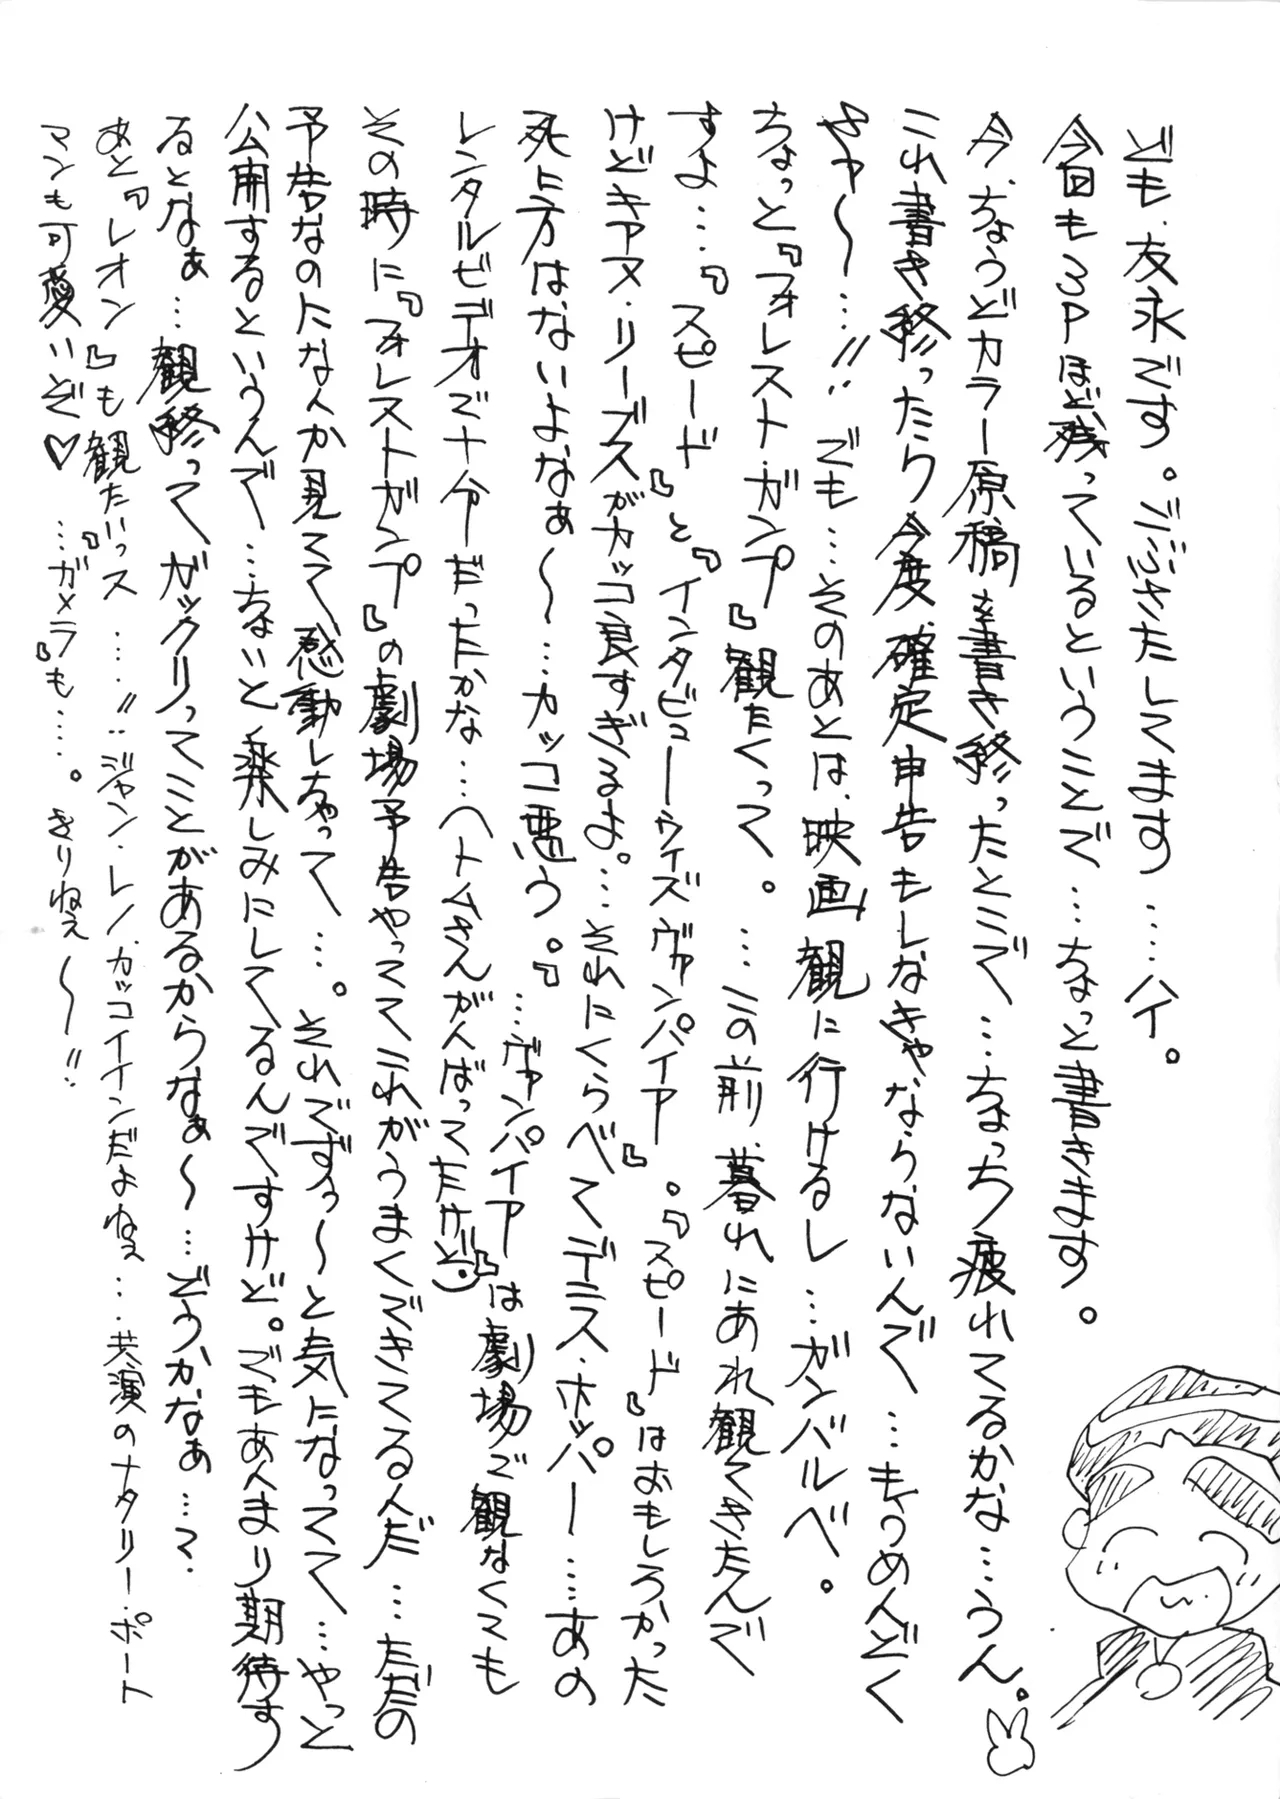 ども、友永です。ごぶさたしてます……ハイ。
今回も3Pほど残っているということで…ちょっと書きます。
今、ちょうどカラー原稿を書き終ったとこで…ちょっち疲れてるかな…うん。
これ書き終ったら今度、確定申告もしなきゃならないんで…もうめんどく
さァ〜…!!でも…そのあとは、映画観に行けるし…ガンバルベ。
ちょっと『フォレスト・ガンプ』観たくって。…この前、暮れにあれ観てきたんで
すよ…『スピード』と『インタビュー・ウィズ・ヴァンパイア』。『スピード』はおもしろかった
けどキアヌ・リーブスがカッコ良すぎるよ。…それにくらべてデニス・ホッパー……あの
死に方はないよなぁ〜…カッコ悪う。…『ヴァンパイア』は劇場で観なくても
レンタルビデオで十分だったかな…(トムさんがんばってたけど)
その時に『フォレストガンプ』の劇場予告やっててこれがうまくできてるんだ…ただの
予告なのになんか見てて感動しちゃって…。それでずぅ〜と気になってて…やっと
公開するというんで…ちょいと楽しみにしてるんですけど。でもあんまり期待す
るとなぁ…観終ってガックリってことがあるからなぁ〜…どうかなぁ…て
あと『レオン』も観たいっス…!!ジャン・レノ、カッコイイんだよねぇ…共演のナタリー・ポート
マンも可愛いぞ♡…『ガメラ』も…。きりねぇ〜!!